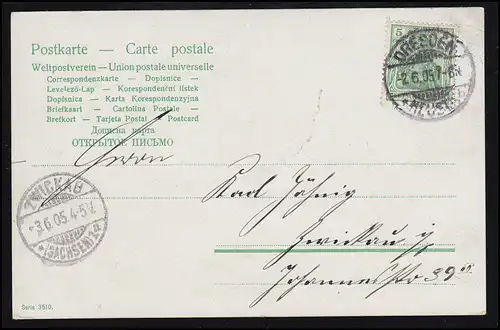 Postkarte — Carte postale
Weltpostverein — Union postale universelle
Correspondenzkarte — Dopisnice —
Levelező-Lap — Korespondenční lístek
Dopisnica — Karta Korespondenzyjna
Briefkaart — Cartolina Postale —
Brefkort — Tarjeta Postal — Postcard
Дописна карта
ОТКРЫТОЕ ПИСЬМО
5
DRESDEN
2.6.05
Herrn
Karl Jähnig
Zwickau
Johannesstr 39
ZWICKAU
3.6.05. 4-5 V.
(SACHSEN)
Serie 3510.